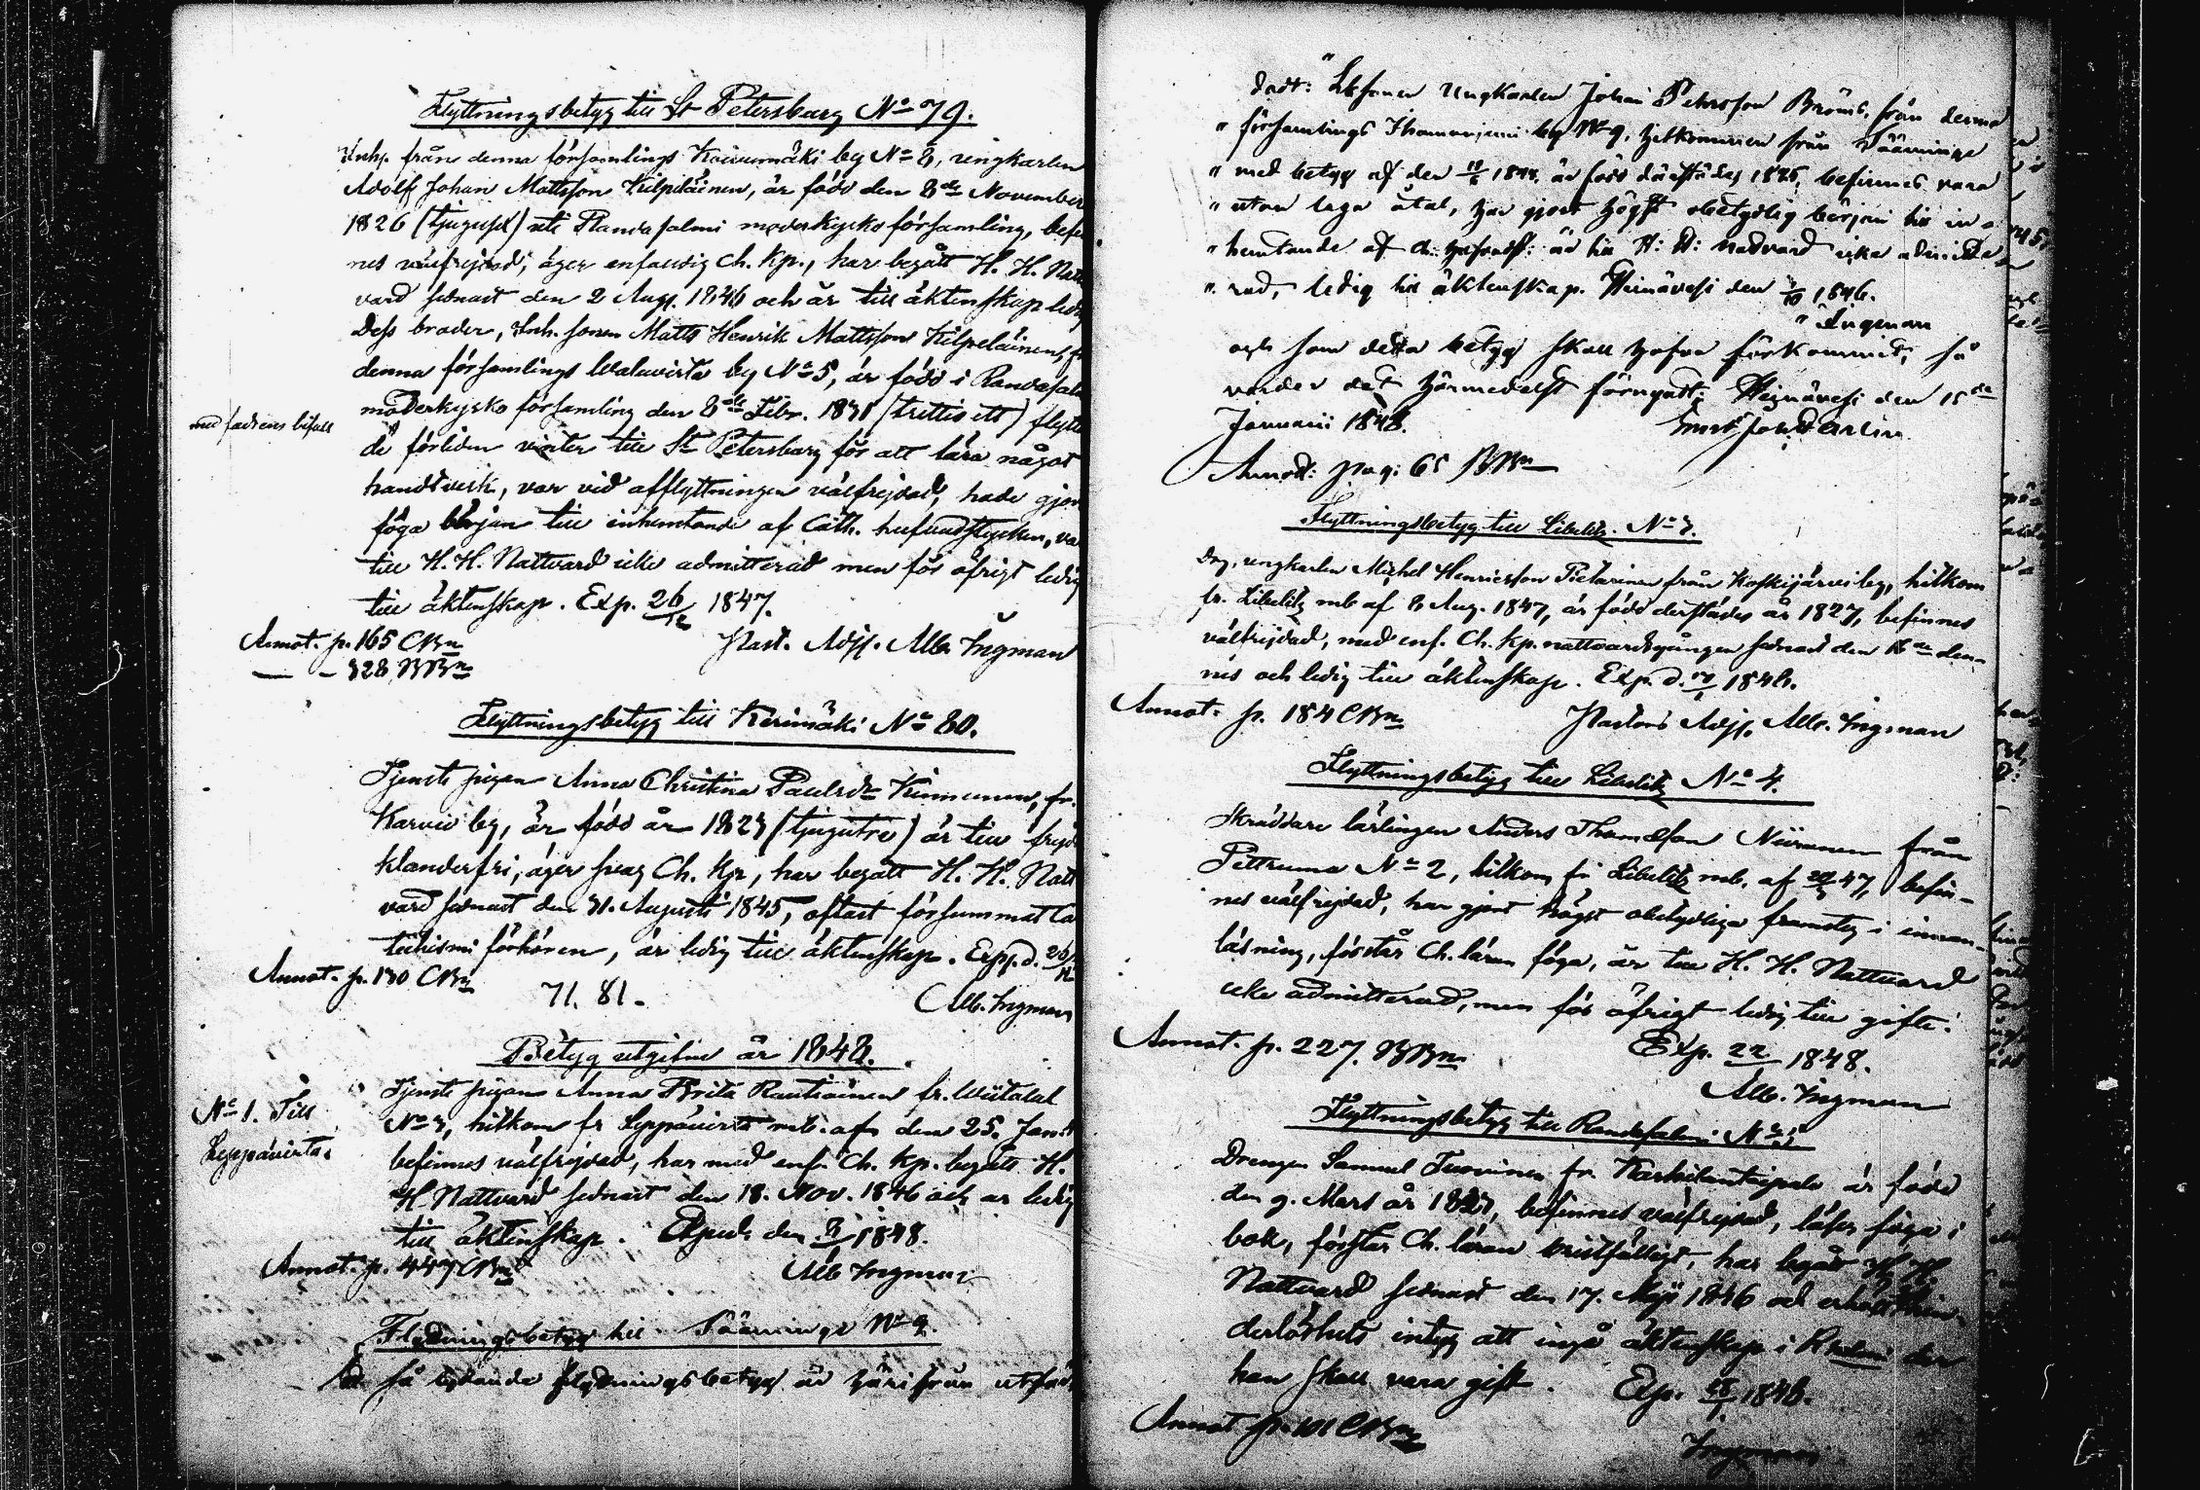 Flyttningsbetyg till St Petersburg No 79.
Inh. från denna församlings Kaurumäki by No 8, ungkarlen
Adolf Johan Mattsson Kilpiläinen, är född den 8de November
1826 (tjugusex) uti Randasalmi moderkyrko församling, befin
nes välfrejdad, äger enfaldig Ch. kp., har begått H. H. Natt
vard sednast den 2 Aug. 1846 och är till äktenskap ledig
Dess broder, Inh. sonen Matts Henrik Mattsson Kilpeläinen, fr
denna församlings Walawirta by No 5, är född i Randasalmi
moderkyrko församling den 8de Febr. 1831 (trettio ett) flytta
med fadrens bifall
de förliden vinter till St Petersburg för att lära något
handtverk, var vid afflyttningen välfrejdad, hade gjort
föga början till inhemtande af Cath. hufvudstycken, var
till H. H. Nattvard icke admitterad men för öfrigt ledig
till äktenskap. Exp. 26/12 1847.
Annot. p. 165 CBn Past. Adj. Alb. Ingman
— – 328 BBn
Flyttningsbetyg till Kerimäki No 80.
Tjenste pigan Anna Christina Paulsdr Kinnunen, fr.
Karvio by, är född år 1823 (tjugutre) är till frejd
klanderfri, äger svag Ch. kp, har begått H. H. Natt
vard sednast den 31. Augusti 1845, oftast försummat Ca
techismi förhören, är ledig till äktenskap. Exp. d. 26/12
Annot. p. 130 CBn 71. 81. Alb. Ingman
Betyg utgifne år 1848.
No 1. Till
Leppävirta.
Tjenste pigan Anna Brita Rautiainen fr.
No 3, hitkom fr Leppävirta mb. af den 25. Jan.
befinnes välfrejdad, har med enf. Ch. kp. begått H.
H. Nattvard sednast den 18. Nov. 1846 och är ledig
till äktenskap. Exped. den 1848.
Annot. p. 447 CBn Alb Ingman
Flyttningsbetyg till Sääminge No 2.
så lydande flyttningsbetyg är härifrån utfär
dadt: "Lösa Ungkarlen Johan Pehrsson Broms, från denna
" församlings by No 9, hitkommen från Sääminge
" med betyg af den 1844 är född därstädes 1825, befinnes vara
" utan laga åtal, har gjort högst obetydlig början till in-
" hemtande af ch: är till H: H: nattvard icke admitte
" rad, ledig till äktenskap. Heinävesi den 1846.
" Ingman
och som detta betyg skall hafva förkommit, så
varder det härmedelst förnyatt; Heinävesi den 15de
Januarii 1848.
Annot: pag: 65 BBn
Flyttningsbetyg till Libelitz. No 3.
Drg, ungkarlen Michel Henricsson Pietarinen från Koskijärvi by, hitkom
fr. Libelitz mb af 8 Aug. 1847, är född derstädes år 1827, befinnes
välfrejdad, med enf. Ch. kp. nattvardsgången sednast den 18de den-
nes och ledig till äktenskap. Exp. d. 1848.
Annot. p. 184 CBn Pastors Adj. Alb. Ingman
Flyttningsbetyg till Libelitz No 4.
Skräddare lärlingen Anders Thomasson Niiranen från
Pettruma No 2, hitkom fr Libelitz mb. af 47, befin-
nes välfrejdad, har gjort högst obetydliga framsteg i innan-
läsning, förstår Ch. läran föga, är till H. H. Nattvard
icke admitterad, men för öfrigt ledig till gifte.
Annot. p. 227. BBn Exp. 22/1 1848.
Alb. Ingman
Flyttningsbetyg till Randasalmi No 5
Drengen Samuel Turunen fr. Karhilantaipale är född
den 9. Mars år 1827, befinnes välfrejdad, läser föga i
bok, förstår Ch. läran bristfälligt, har begått H. H.
Nattvard sednast den 17. Maji 1846 och erhållit hin-
derlöshets intyg att ingå äktenskap i Rsalmi der
han skall vara gift. Exp. 28/1 1848.
Annot. p. 101 CBn
Ingman